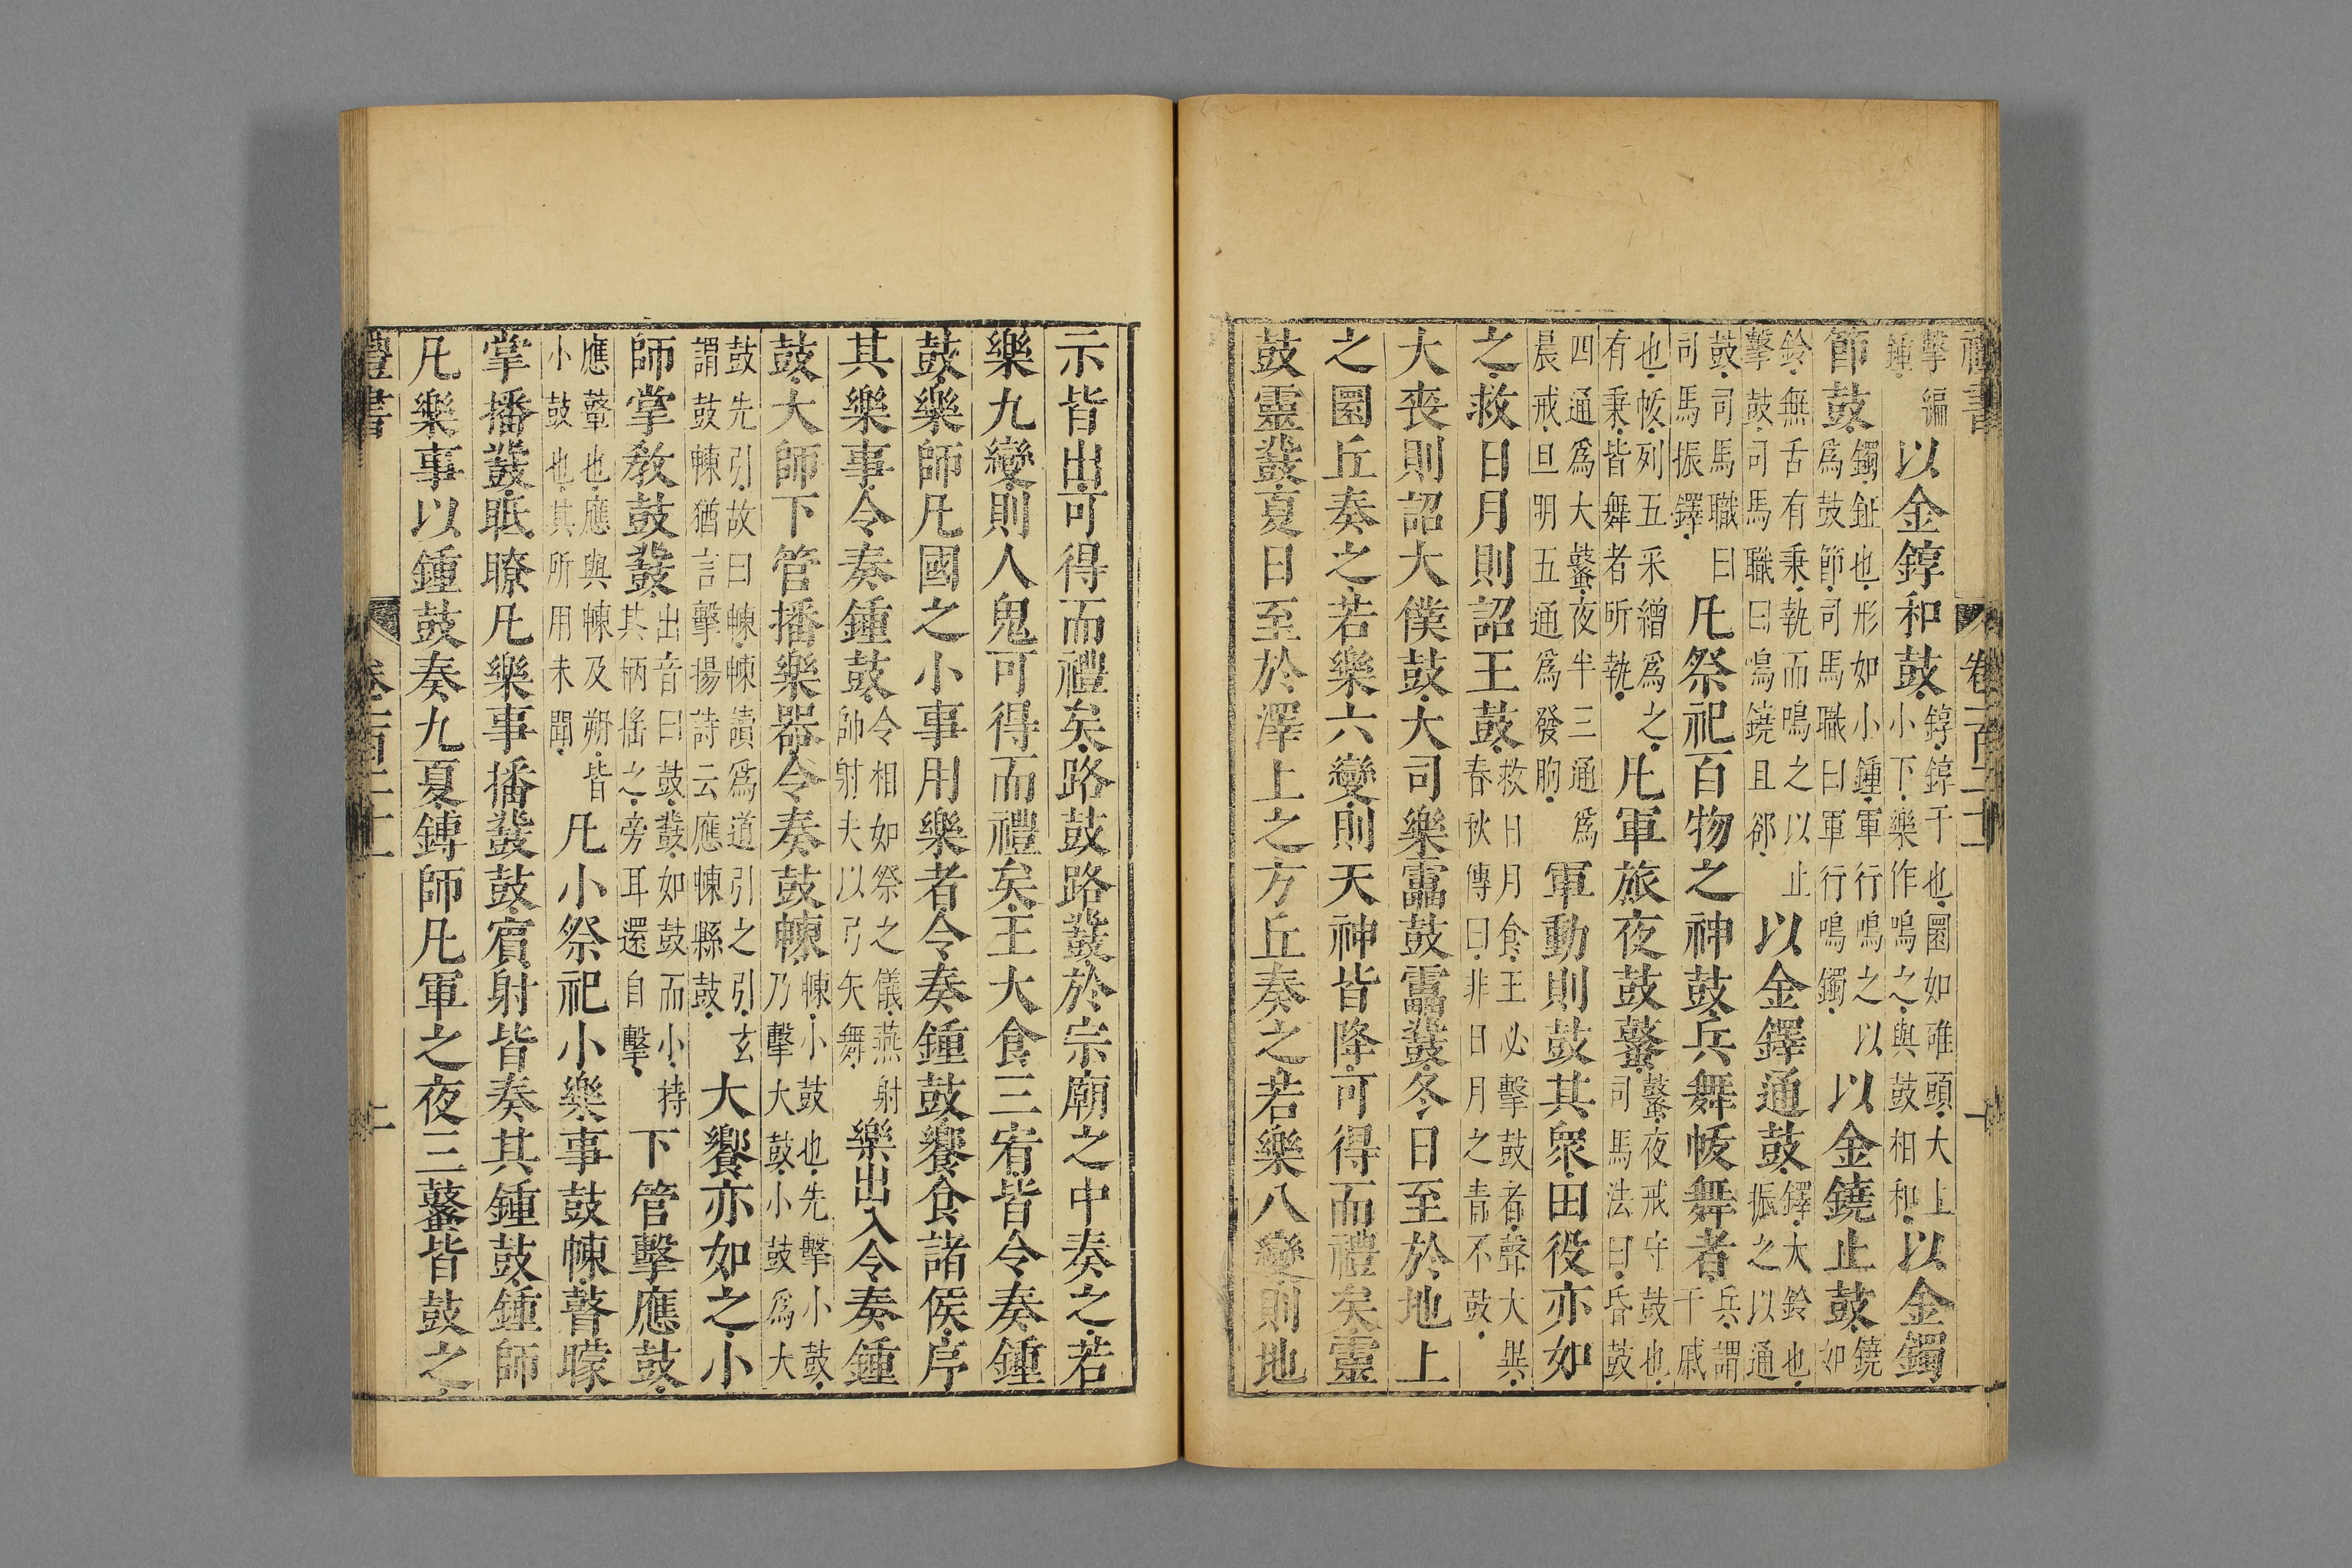 書 卷一百二十
擊編鍾以金錞和鼓錞錞于也圜如碓頭大上小下樂作鳴之與鼓相和以金鐲
節鼓鐲鉦也形如小鍾軍行鳴之以爲鼓節司馬職曰軍行鳴鐲以金鐃止鼓鐃如
鈴無舌有秉執而鳴之以止擊鼓司馬職曰鳴鐃且郤以金鐸通鼓鐸大鈴也振之以通
鼓司馬職曰司馬振鐸凡祭祀百物之神鼓兵舞帗舞者兵謂干戚
也帗列五采繒爲之有秉皆舞者所執凡軍旅夜鼓鼜鼜夜戒守鼓也司馬法曰昏鼓
四通爲大鼜夜半三通爲晨戒旦明五通爲發昫軍動則鼓其衆田役亦如
之救日月則詔王鼓救日月食王必擊鼓者聲大異春秋傳曰非日月之眚不鼓
大喪則詔大僕鼓大司樂靁鼓靁鼗冬日至於地上
之圜丘奏之若樂六變則天神皆降可得而禮矣靈
鼓靈鼗夏日至於澤上之方丘奏之若樂八變則地
示皆出可得而禮矣路鼓路鼗於宗廟之中奏之若
樂九變則人鬼可得而禮矣王大食三宥皆令奏鍾
鼓樂師凡國之小事用樂者令奏鍾鼓饗食諸侯序
其樂事令奏鍾鼓令相如祭之儀燕射帥射夫以弓矢舞樂出入令奏鍾
鼓大師下管播樂器令奏鼓朄朄小鼓也先擊小鼓乃擊大鼓小鼓爲大
鼓先引故曰朄朄讀爲道引之引玄謂鼓朄猶言擊揚詩云應朄縣鼓大饗亦如之小
師掌教鼓鼗出音曰鼓鼗如鼓而小持其柄搖之旁耳還自擊下管擊應鼓
應鼙也應與朄及朔皆小鼓也其所用未聞凡小祭祀小樂事鼓朄瞽矇
掌播鼗眂瞭凡樂事播鼗鼓賓射皆奏其鍾鼓鍾師
凡樂事以鍾鼓奏九夏鎛師凡軍之夜三鼜皆鼓之